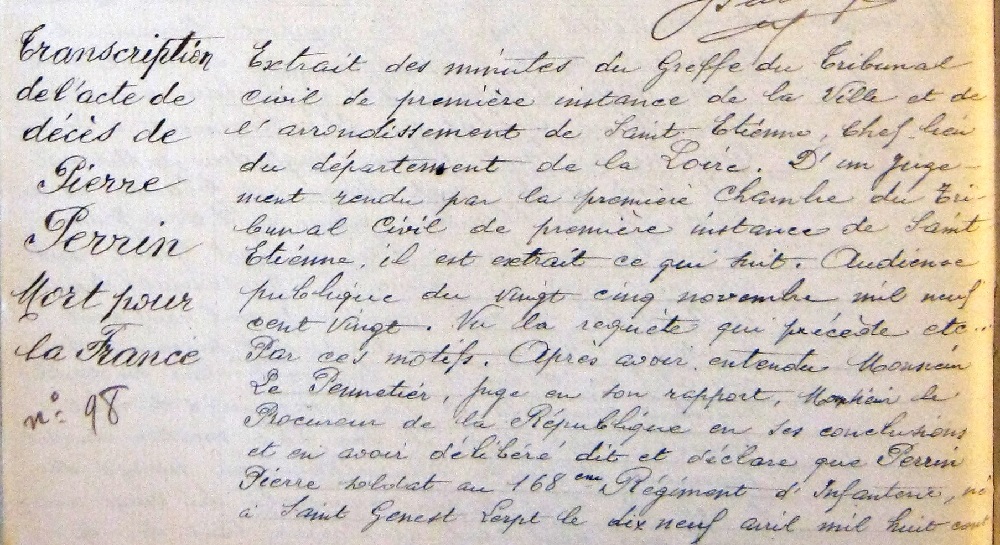 Transcription
de l'acte de
décès de
Pierre
Perrin
Mort pour
la France
n° 98
Extrait des minutes du Greffe du Tribunal
civil de première instance de la Ville et de
l'arrondissement de Saint Etiénne, Chef lieu
du département de la Loire. D'un juge-
ment rendu par la première Chambre du Tri-
bunal Civil de première instance de Saint
Etiénne, il est extrait ce qui suit. Audience
publique du vingt cinq novembre mil neuf
cent vingt. Vu la requête qui précède etc...
Par ces motifs. Après avoir entendu Monsieur
Le Pennetier, juge en son rapport, Monsieur le
Procureur de la République en ses conclusions
et en avoir délibéré dit et déclare que Perrin
Pierre soldat au 168 eme Régiment d'Infanterie, né
à Saint Genest Lerpt le dix neuf avril mil huit cent